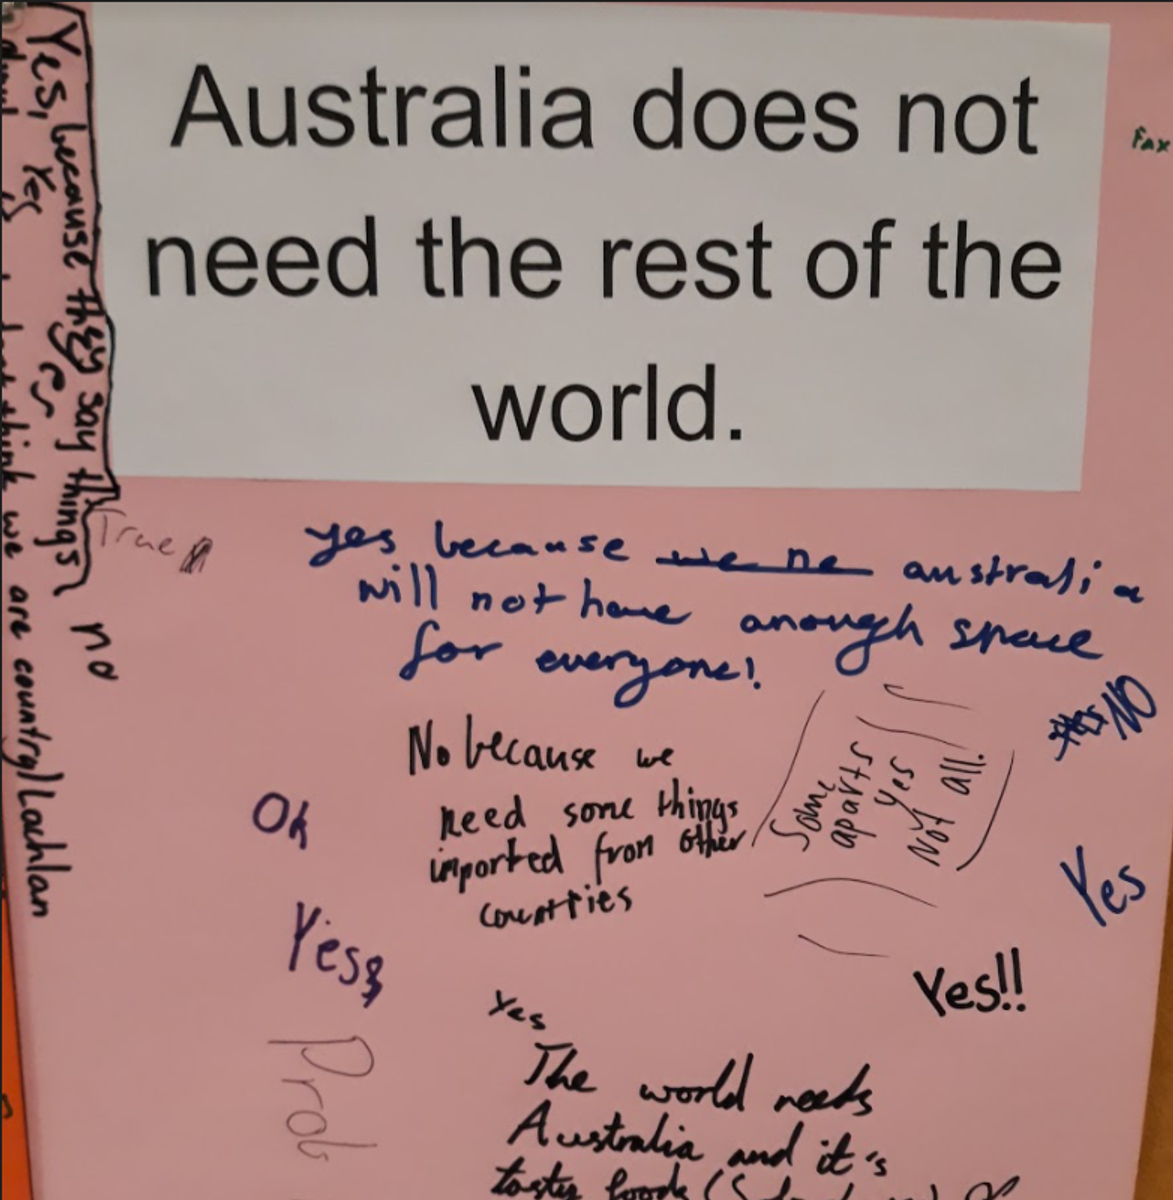 Australia does not
need the rest of the
world.
Fax
Yes, because they say things
Yes
Yes
no
think we are country/Lachlan
True
yes because we ne australia
will not have anough space
for everyone!
Yes NO
No because we
need some things
imported from other
countries
Some
aparts
yes
Not all.
Oh
Yes
Yes
Yes!!
Yes
Prob
The world needs
Australia and it's